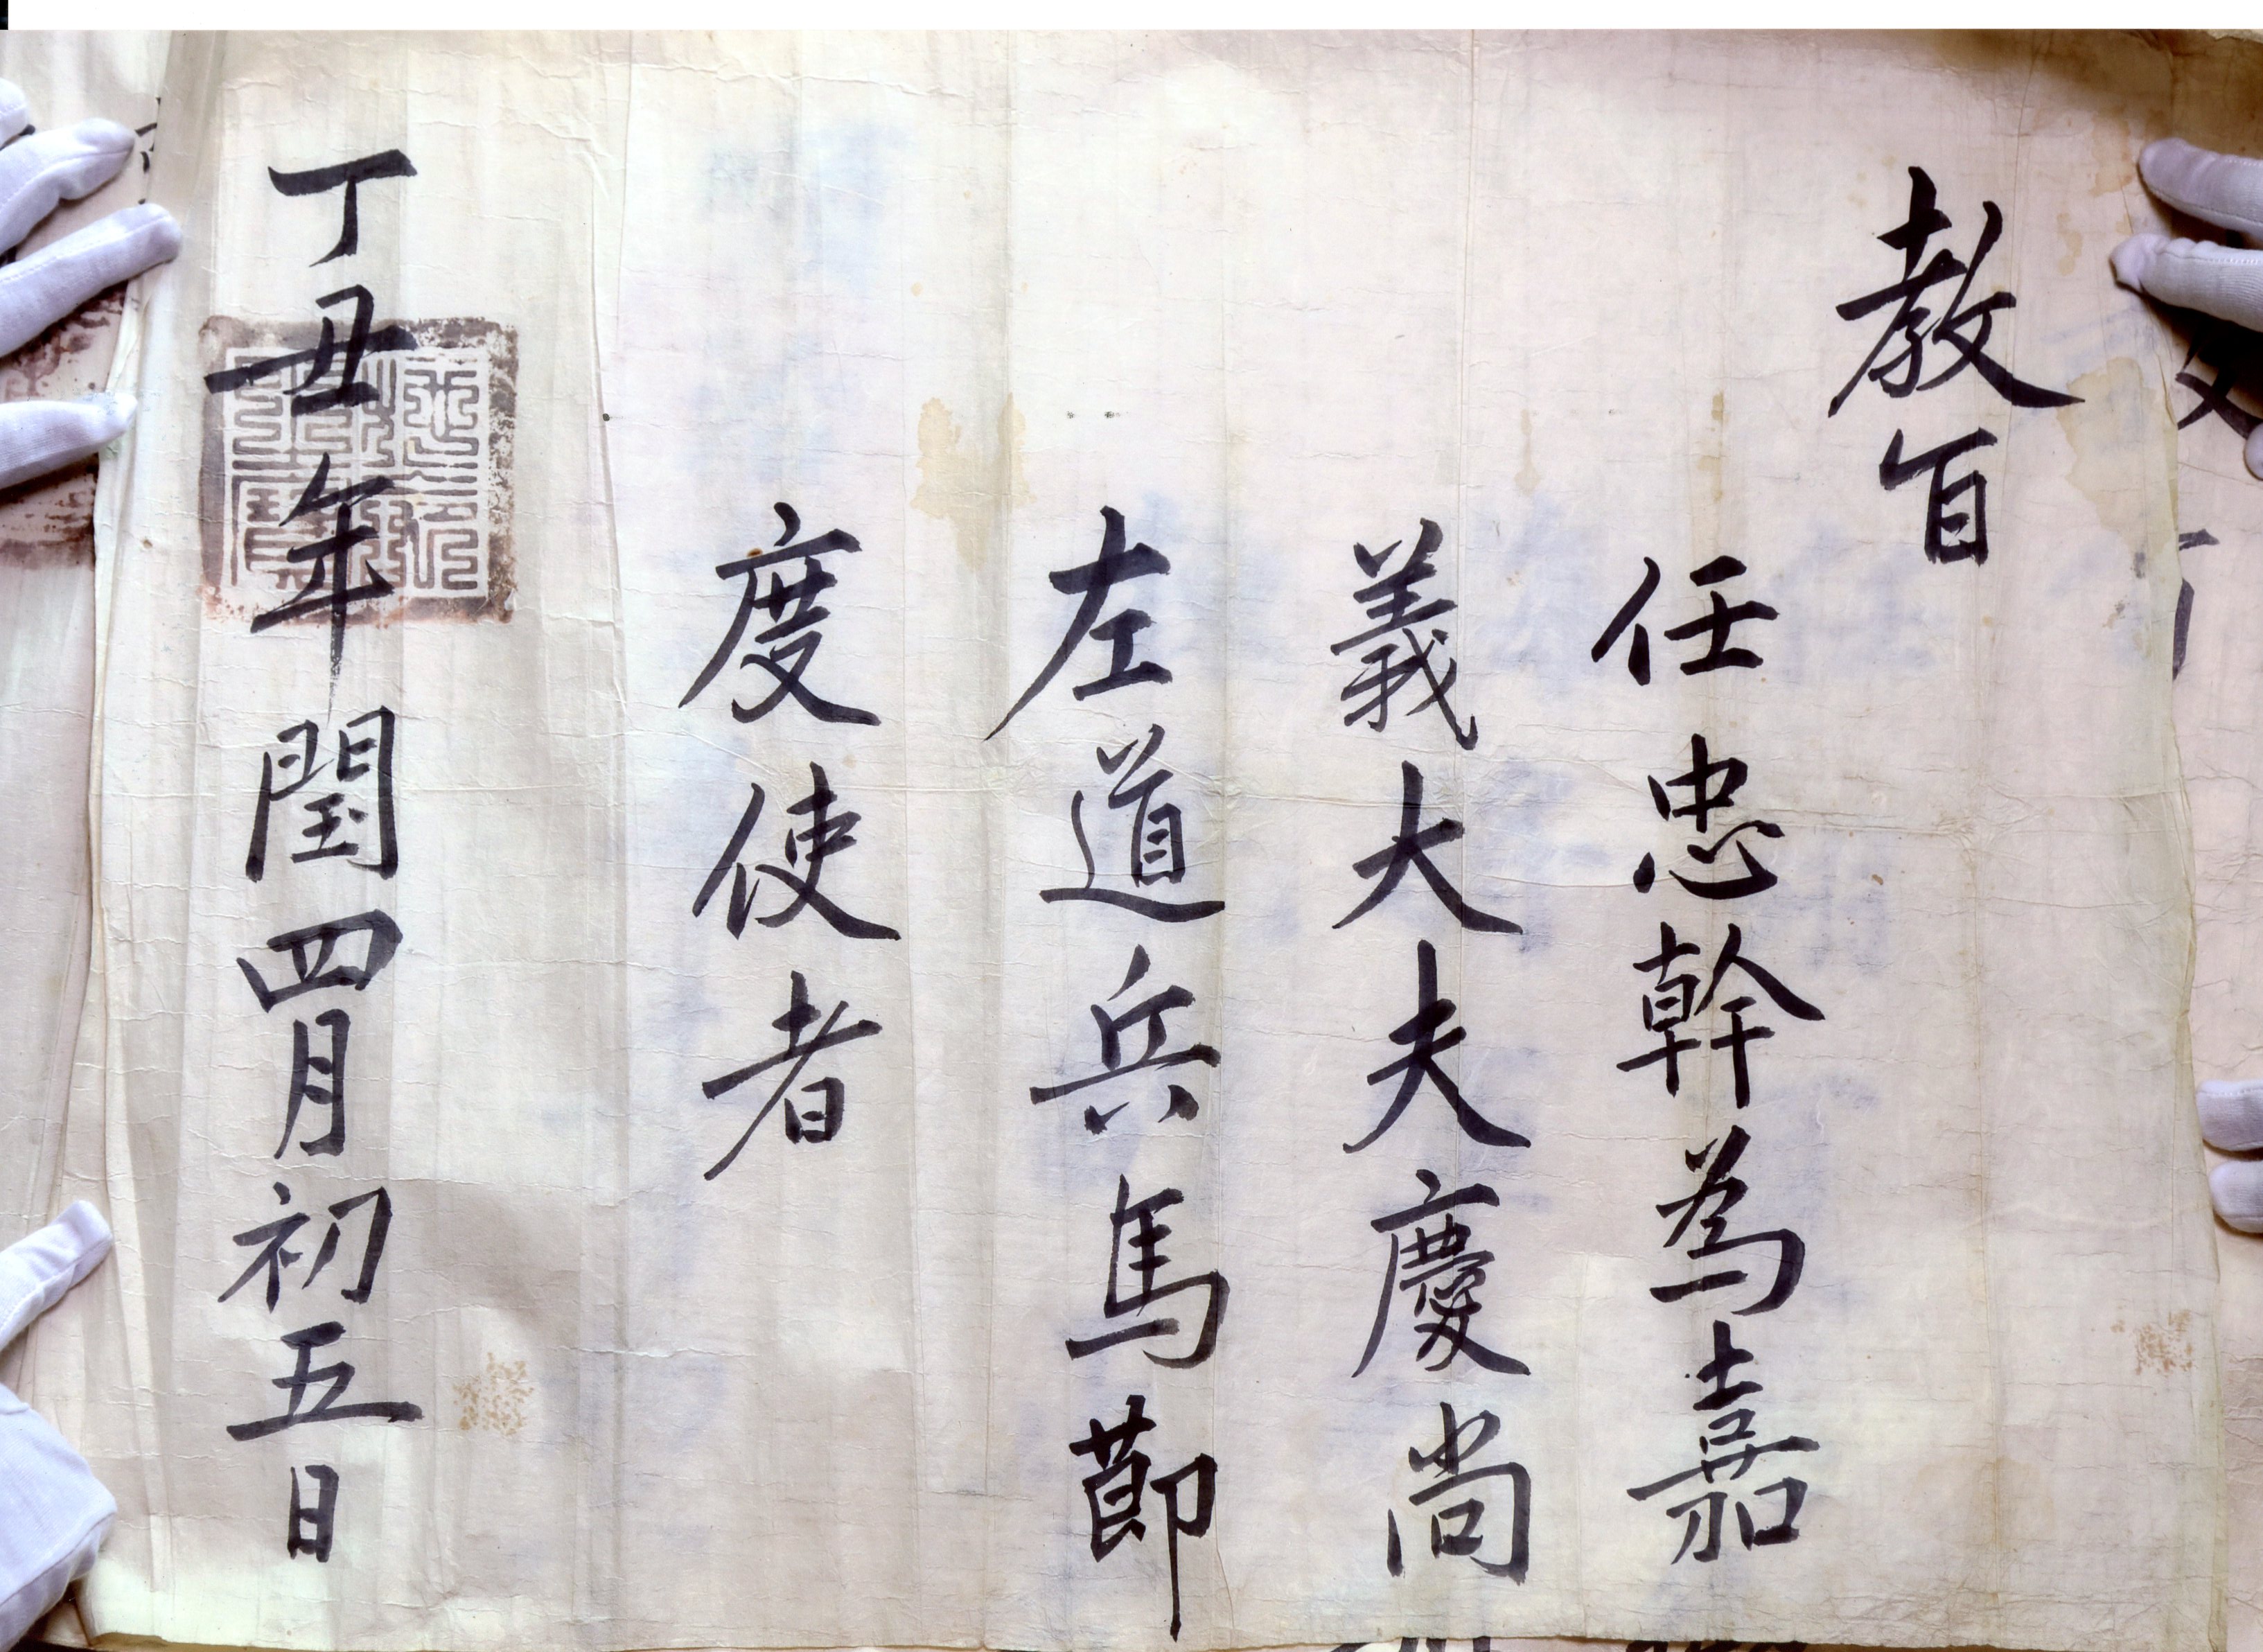 教旨
任忠幹為嘉
義大夫慶尚
左道兵馬節
度使者
丁丑年閏四月初五日